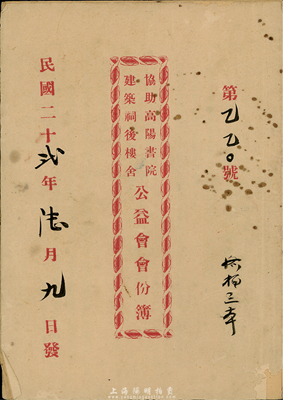 第乙乙〇號
協助高陽書院
建築祠後樓舍
公益會會份簿
民國二十弍年陸月九日發
上海陽明拍賣